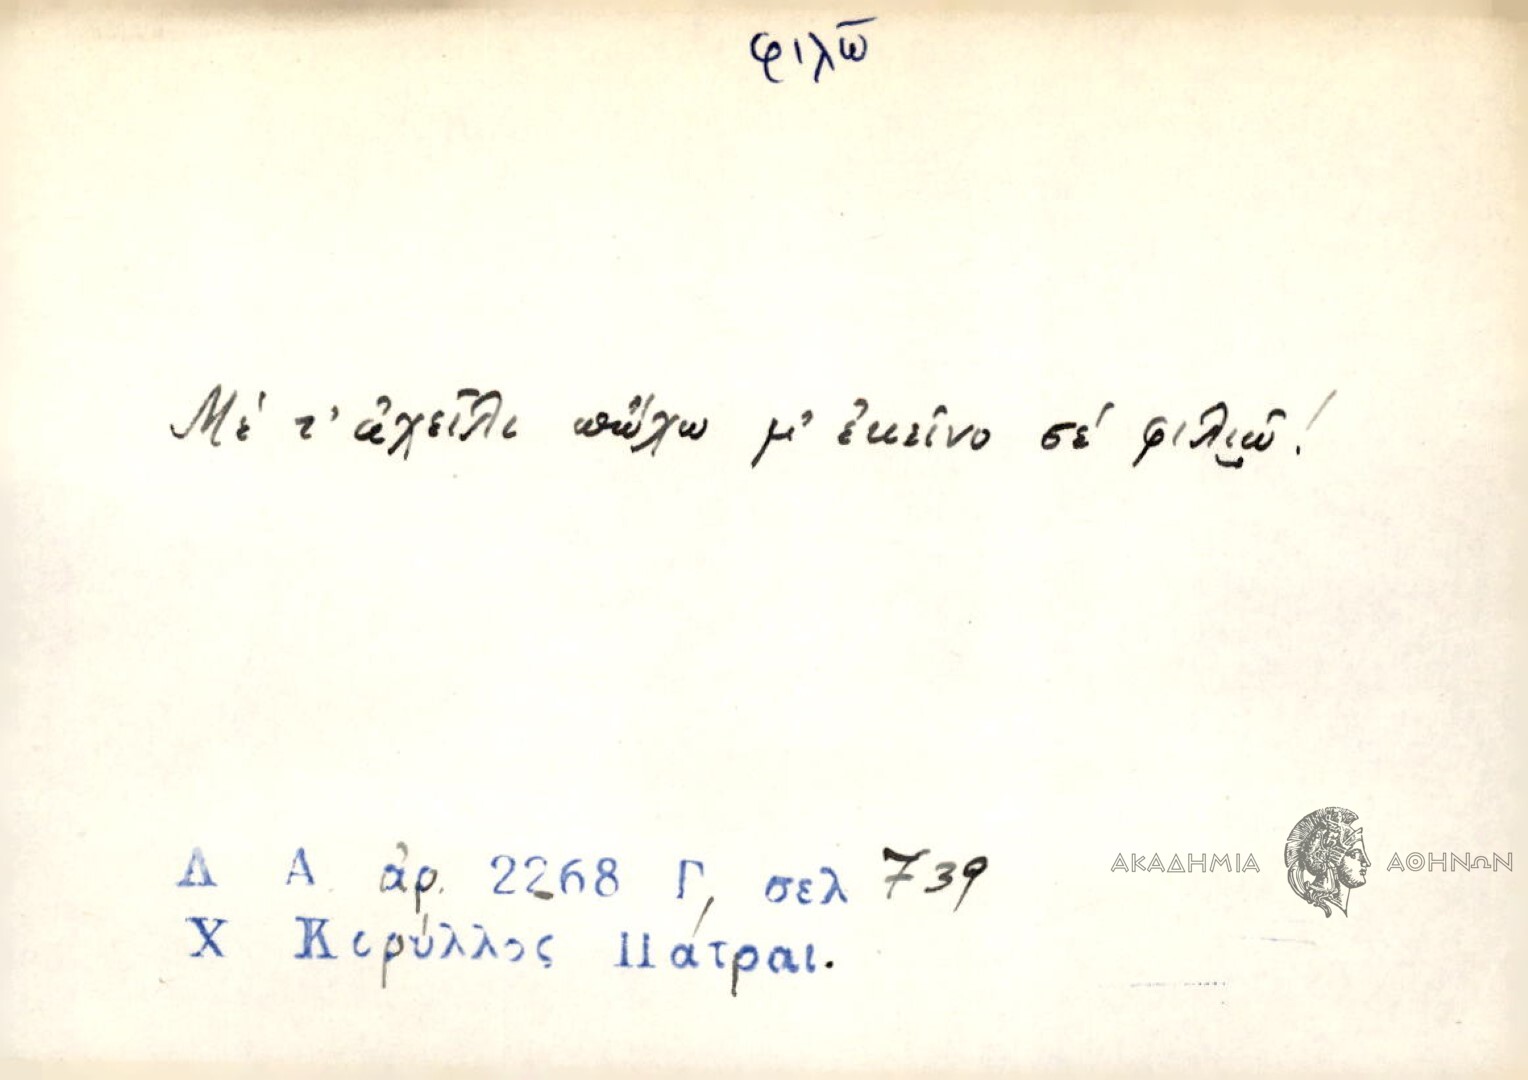 φιλῶ
Μέ τ' ἀχεῖλι πὤχω μ' ἐκεῖνο σέ φιλιῶ!
Λ Α ἀρ. 2268 Γ, σελ 739
Χ Κορύλλος Πάτραι.
ΑΚΑΔΗΜΙΑ ΑΘΗΝΩΝ